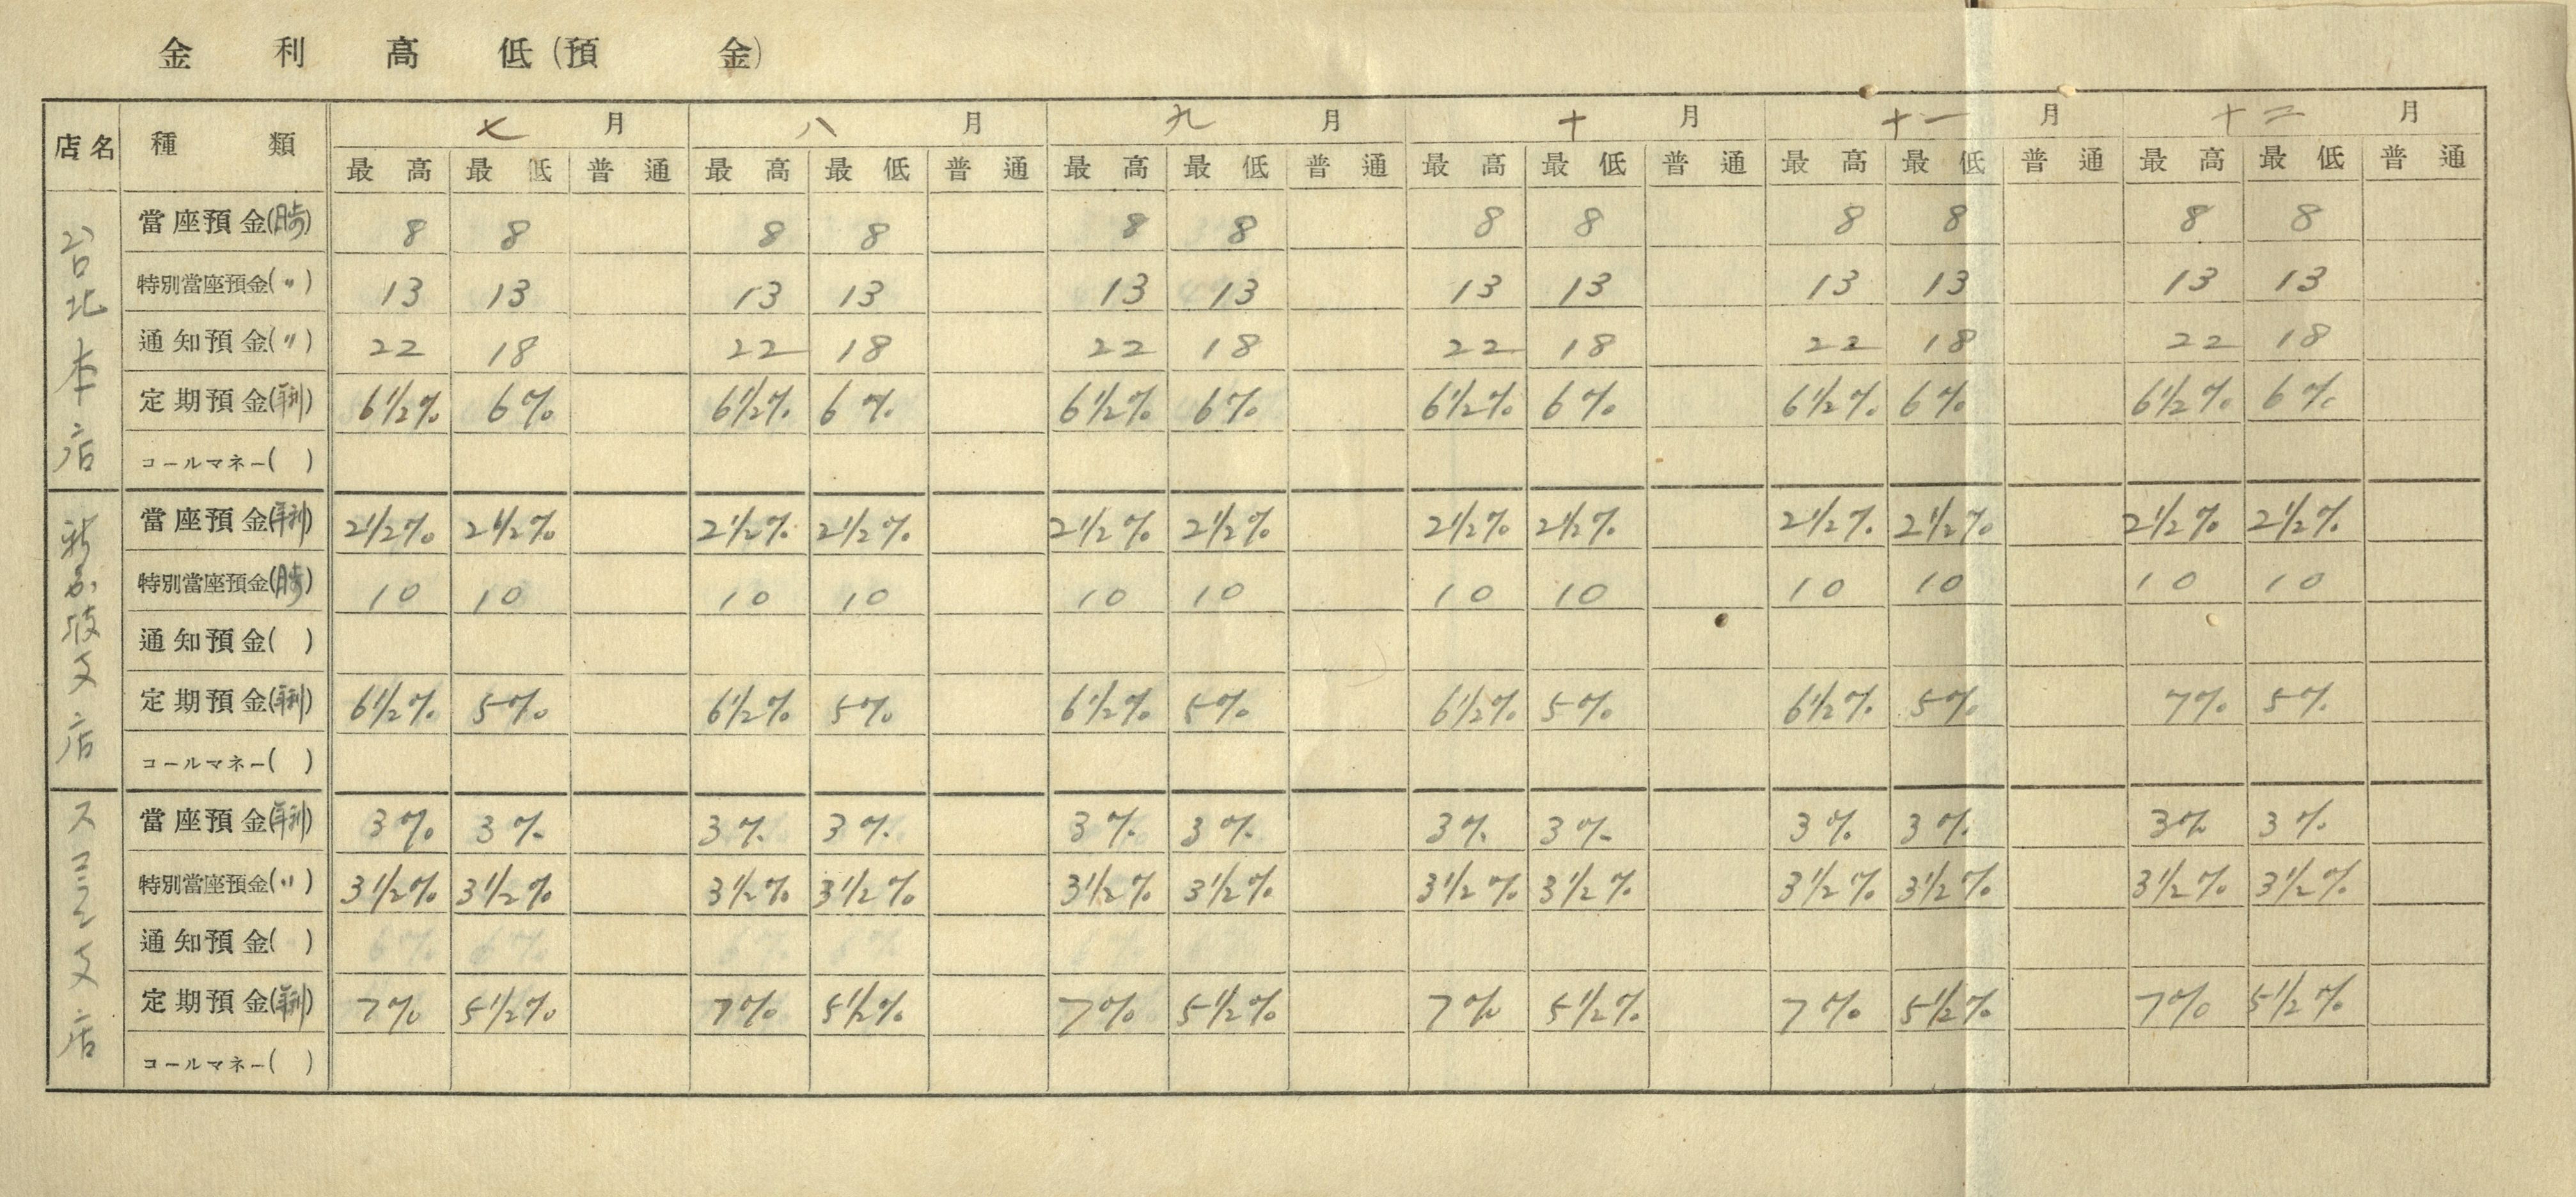 金利高低(預金)
店名 種類 七月 八月 九月 十月 十一月 十二月
最高 最低 普通 最高 最低 普通 最高 最低 普通 最高 最低 普通 最高 最低 普通 最高 最低 普通
台北本店
當座預金( ) 8 8 8 8 8 8 8 8 8 8 8 8
特別當座預金(〃) 13 13 13 13 13 13 13 13 13 13 13 13
通知預金(〃) 22 18 22 18 22 18 22 18 22 18 22 18
定期預金(年利) 6½% 6% 6½% 6% 6½% 6% 6½% 6% 6½% 6% 6½% 6%
コールマネー( )
新嘉坡支店
當座預金(年利) 2½% 2½% 2½% 2½% 2½% 2½% 2½% 2½% 2½% 2½% 2½% 2½%
特別當座預金( ) 10 10 10 10 10 10 10 10 10 10 10 10
通知預金( )
定期預金(年利) 6½% 5% 6½% 5% 6½% 5% 6½% 5% 6½% 5% 7% 5%
コールマネー( )
支店
當座預金(年利) 3% 3% 3% 3% 3% 3% 3% 3% 3% 3% 3% 3%
特別當座預金(〃) 3½% 3½% 3½% 3½% 3½% 3½% 3½% 3½% 3½% 3½% 3½% 3½%
通知預金( )
定期預金(年利) 7% 5½% 7% 5½% 7% 5½% 7% 5½% 7% 5½% 7% 5½%
コールマネー( )